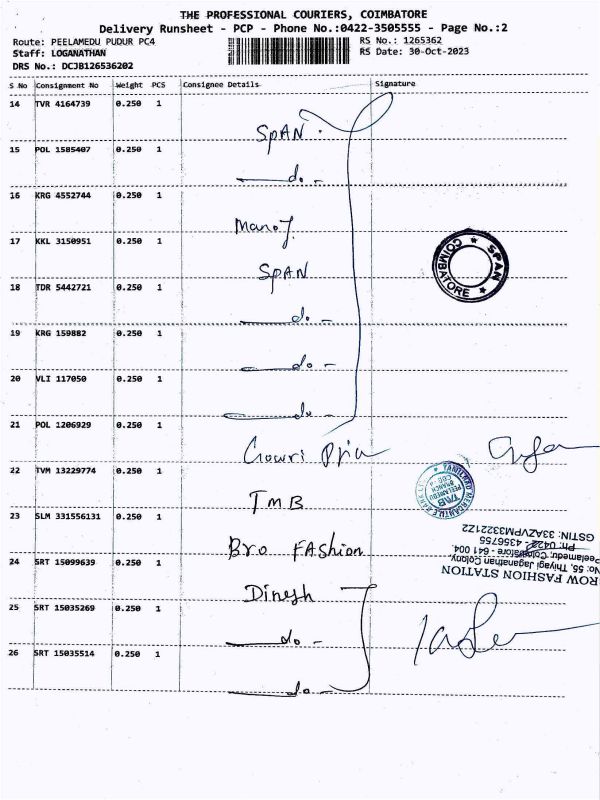 THE PROFESSIONAL COURIERS, COIMBATORE
Delivery Runsheet - PCP - Phone No.:0422-3505555 - Page No.:2
Route: PEELAMEDU PUDUR PC4 RS No.: 1265362
Staff: LOGANATHAN RS Date: 30-Oct-2023
DRS No.: DCJB126536202
S No Consignment No Weight PCS Consignee Details Signature
14 TVR 4164739 0.250 1
SpAN
15 POL 1585407 0.250 1
do -
16 KRG 4552744 0.250 1
Manoj
17 KKL 3150951 0.250 1
SpAN
SPAN COIMBATORE
18 TDR 5442721 0.250 1
do -
19 KRG 159882 0.250 1
do -
20 VLI 117050 0.250 1
do -
21 POL 1206929 0.250 1
Gowri Priya
22 TVM 13229774 0.250 1
TAMILNAD MERCANTILE BANK
TMB
PEELAMEDU
BRANCH
TMB
23 SLM 331556131 0.250 1
Bro FAshion
24 SRT 15099639 0.250 1
ROW FASHION STATION
No: 55, Thiyagi Jaganathan Colony,
Peelamedu, Coimbatore - 641 004.
Ph: 0422 4356755
GSTIN: 33AZVPM3322
Dinesh
25 SRT 15035269 0.250 1
do -
26 SRT 15035514 0.250 1
do -